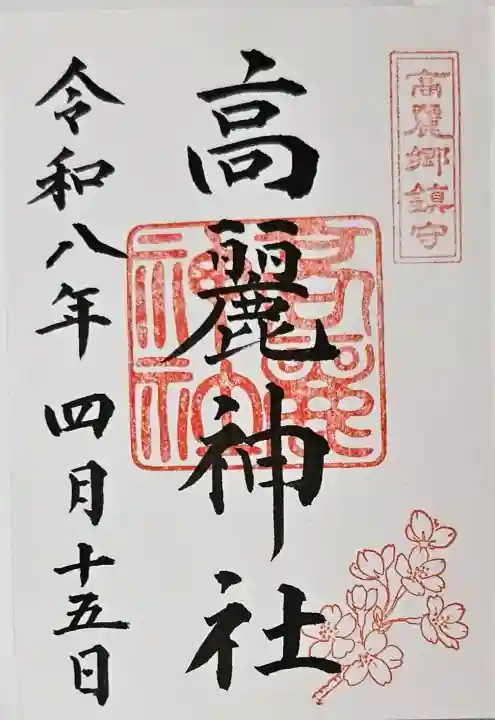 高麗郷鎮守
高麗神社
令和八年四月十五日
高麗神社